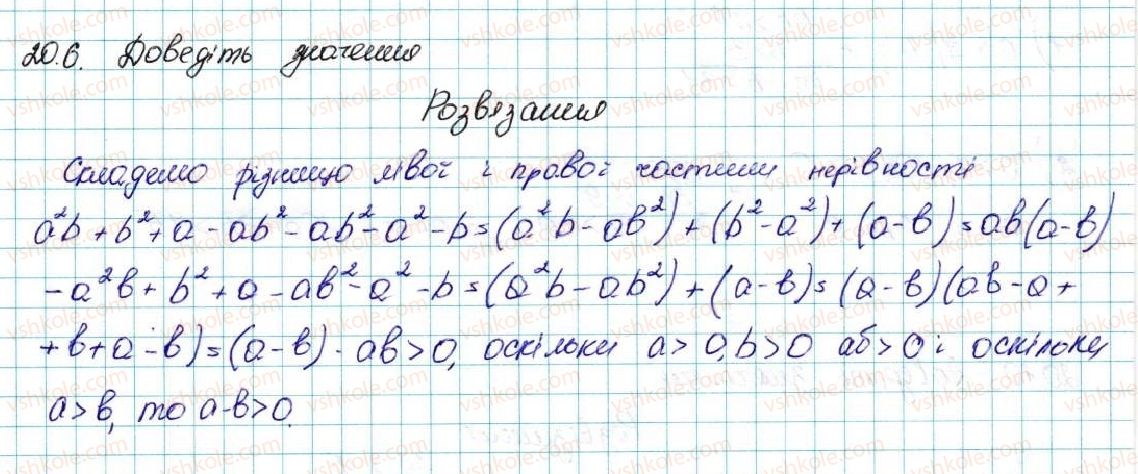 20.6. Доведіть значення
Розвязання
Складемо різницю лівої і правої частини нерівності
a²b + b² + a - ab² - ab² - a² - b = (a²b - ab²) + (b² - a²) + (a - в) = ab(a - b)
- a²b + b² + a - ab² - a² - b = (a²b - ab²) + (a - в) = (a - в)(ab - a +
+ в + a - в) = (a - в) · ab > 0, оскільки a > 0, b > 0 аб > 0 і оскільки
a > в, то a - в > 0.